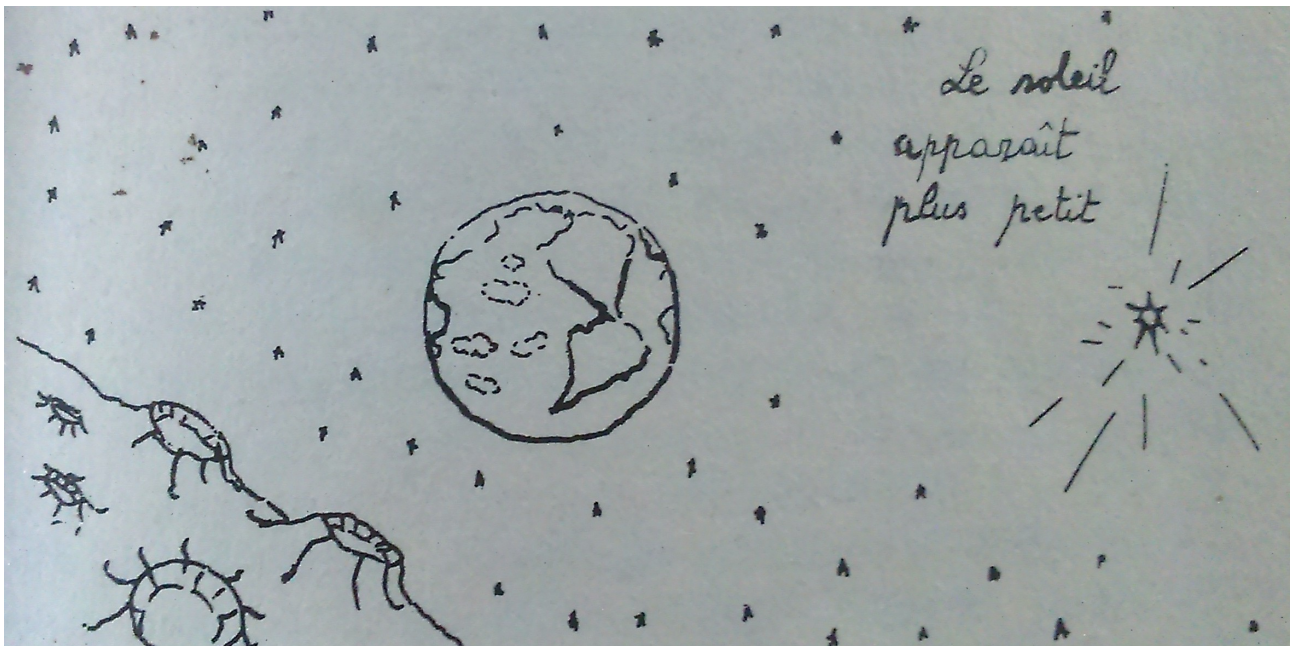 Le soleil
apparaît
plus petit